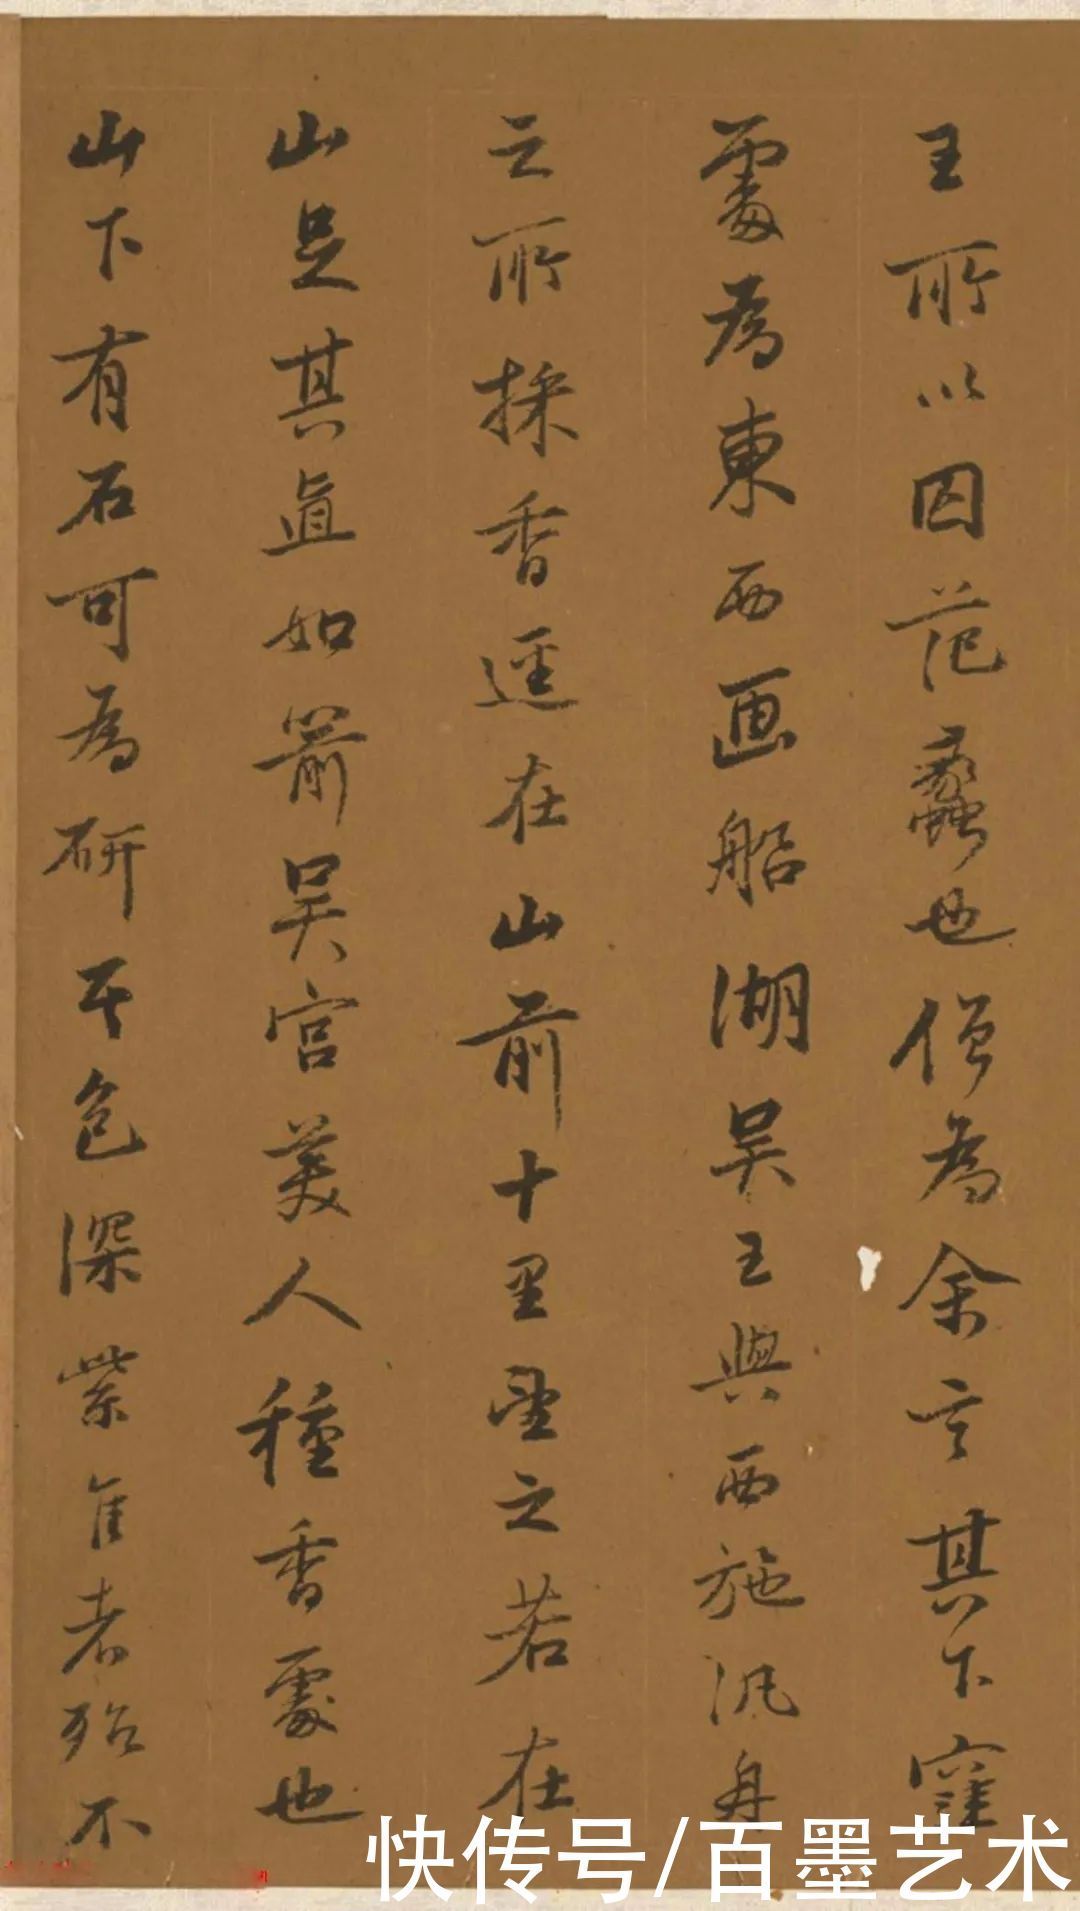 王所以囚范蠡也僧為余言其下窪
處為東西画船湖吳王與西施汎舟
之所採香逕在山前十里望之若在
山足其直如箭吳宫美人種香處也
山下有石可為研其色深紫佳者殆不
快传号/百墨艺术